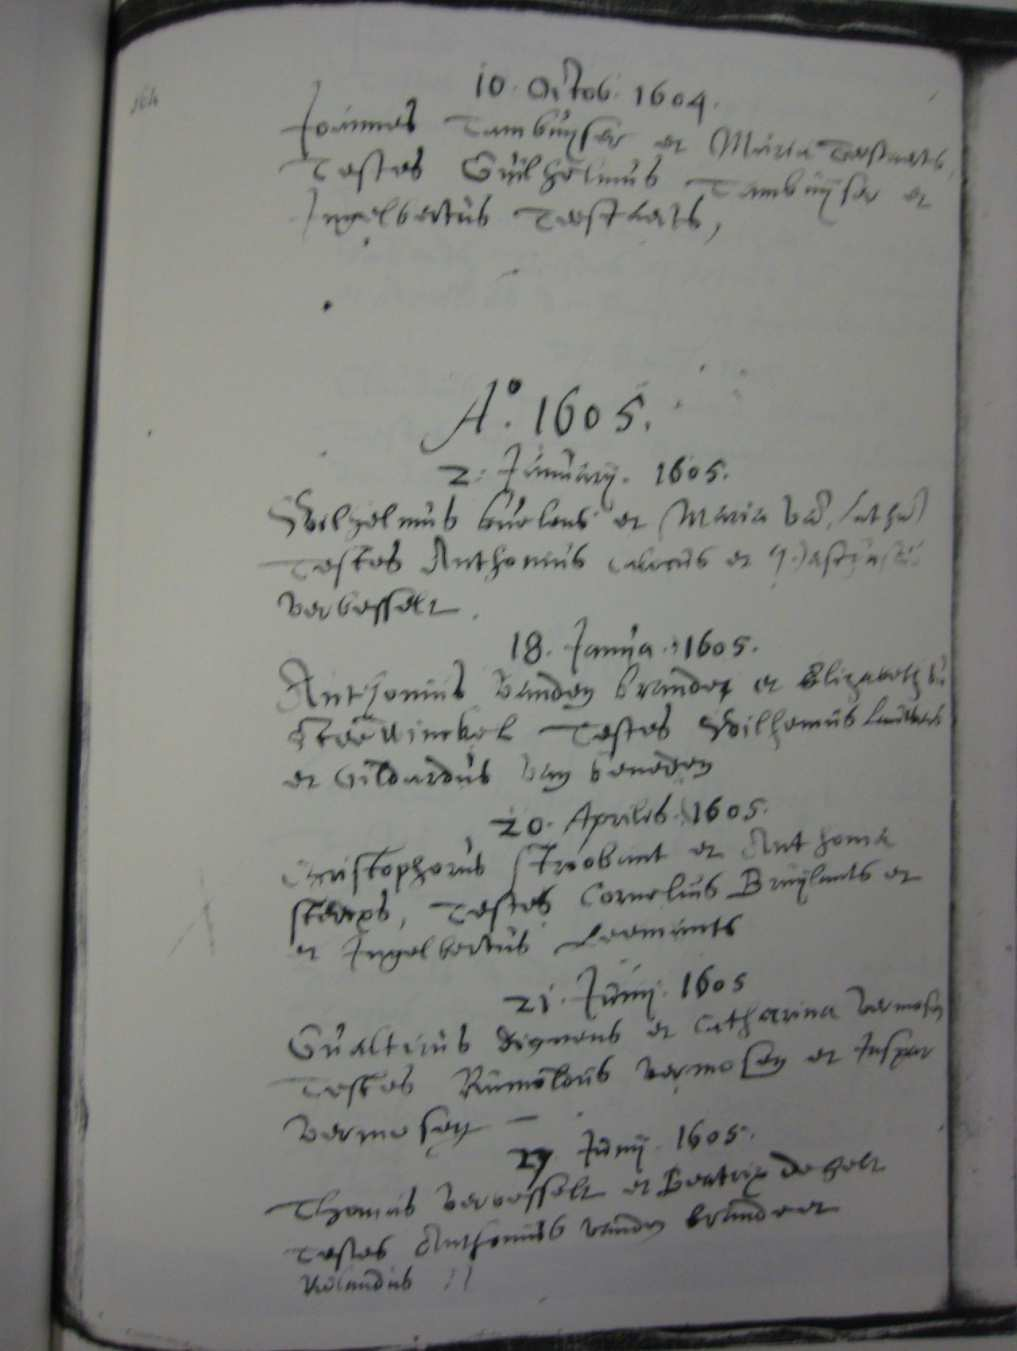 10. Octob. 1604.
Joannes Tambuyser et Maria Teestaerts,
Testes Guilhelmus Tambuyser et
Ingelbertus Teestaerts,
Aº. 1605.
2. Januarij. 1605.
Wilhelmus et Maria
Testes Anthonius et
verbesselt.
18. Janua. 1605.
Anthonius vanden brande et Elizabeth
Steewinckel Testes Wilhemus
et Gildardus van beneden
20. Aprilis. 1605.
Christophorus Stroobant et Anthonia
Testes Cornelius Bruylants et
et Ingelbertus Leemants
21. Junij. 1605
Gualterus et Catharina vermosen
Testes Rumoldus vermosen et Jaspar
vermosen
27 Junij. 1605.
Thomas verbesselt et Beatrix de
Testes Anthonius vanden brande et
Rolandus